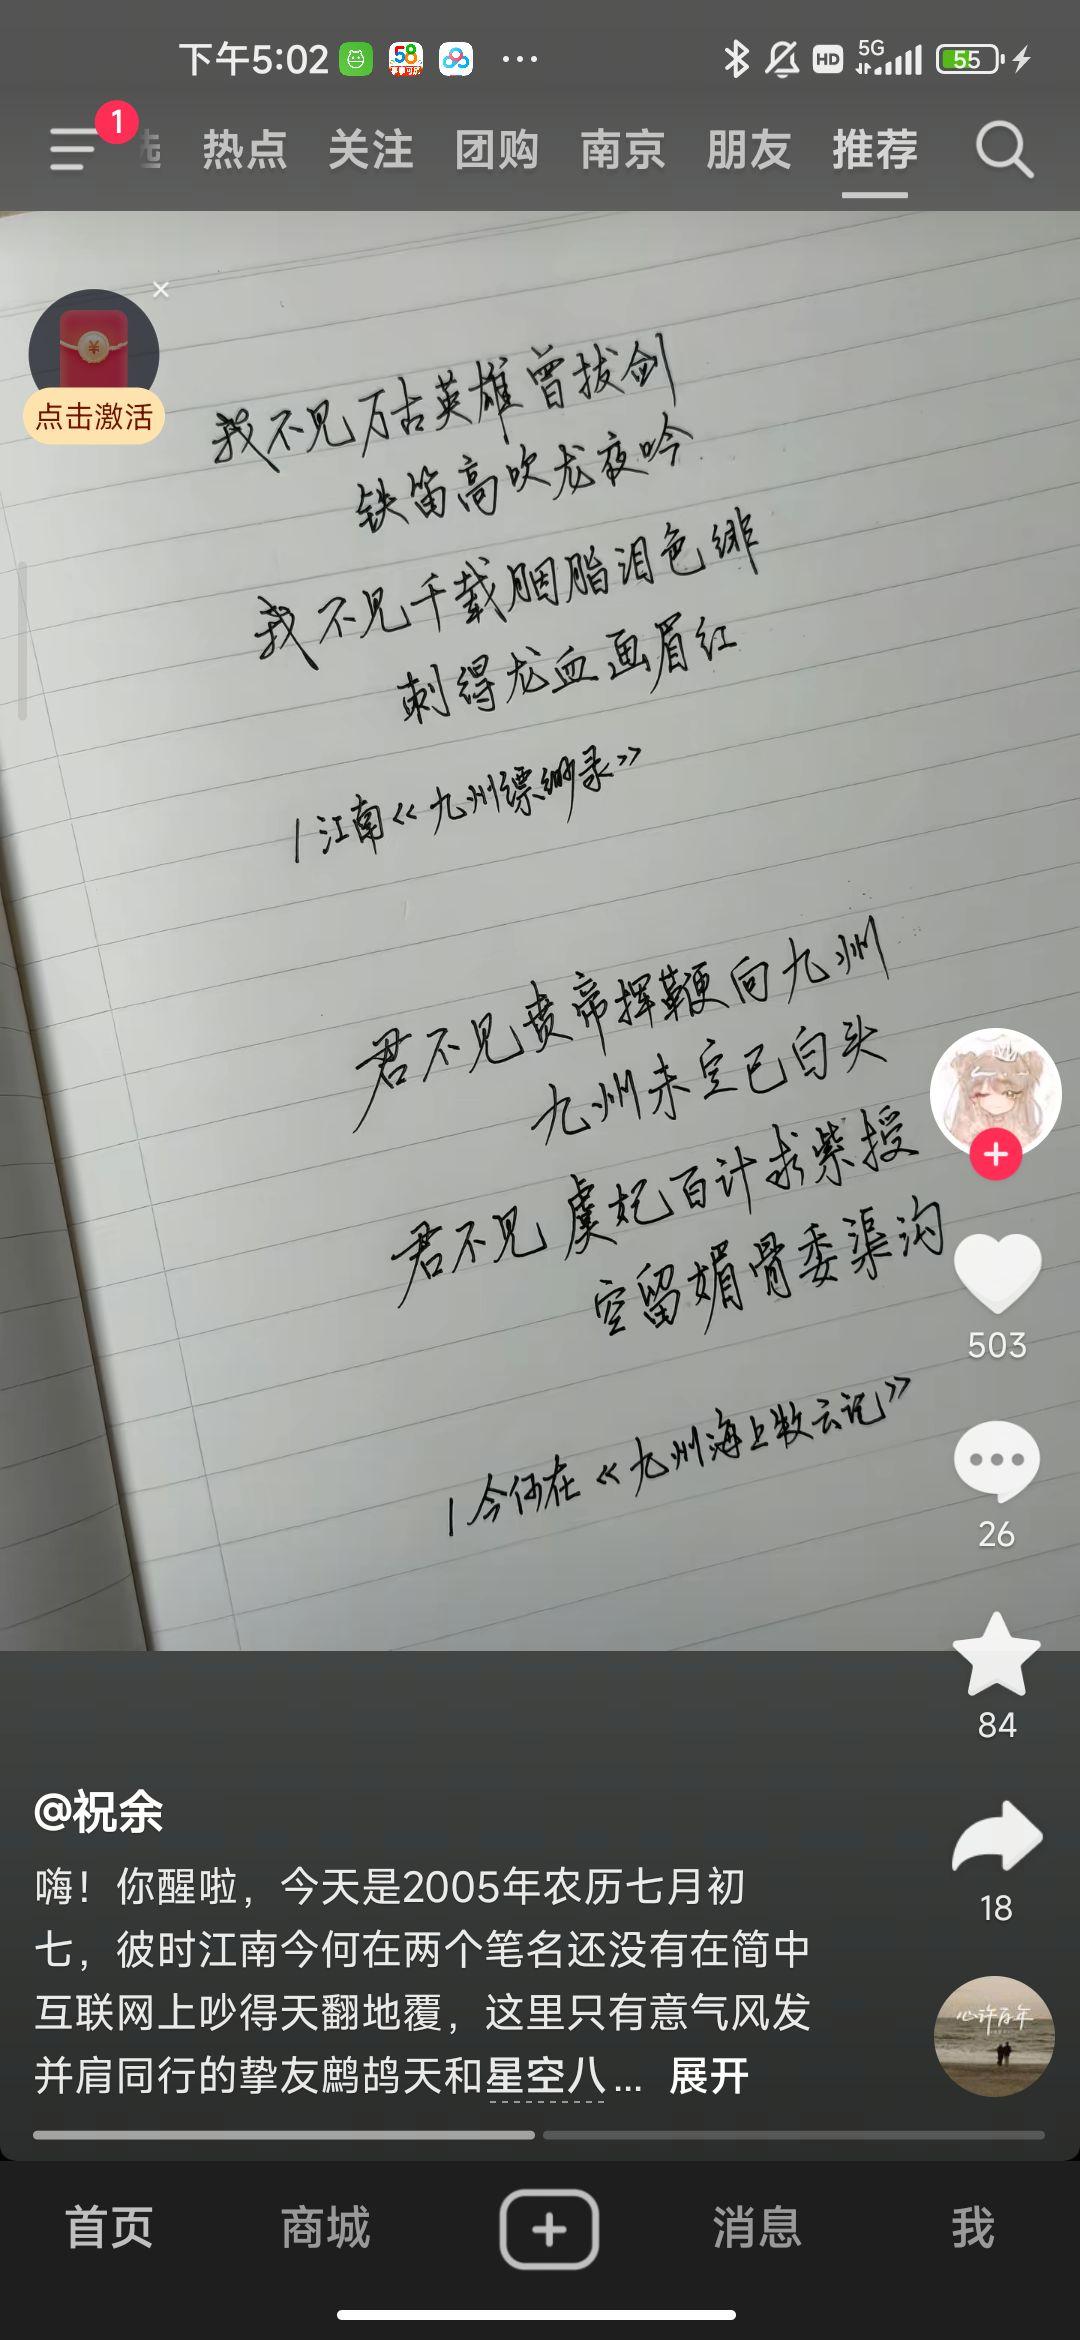 下午5:02
58
HD
5G
55
1
选 热点 关注 团购 南京 朋友 推荐
点击激活
我不见万古英雄曾拔剑
铁笛高吹龙夜吟
我不见千载胭脂泪色绯
刺得龙血画眉红
/江南《九州缥缈录》
君不见贲帝挥鞭向九州
九州未定已白头
君不见虞妃百计求紫授
空留媚骨委渠沟
/今何在《九州海上牧云记》
503
26
84
18
@祝余
嗨！你醒啦，今天是2005年农历七月初
七，彼时江南今何在两个笔名还没有在简中
互联网上吵得天翻地覆，这里只有意气风发
并肩同行的挚友鹧鸪天和星空八... 展开
心许百年
首页 商城 消息 我